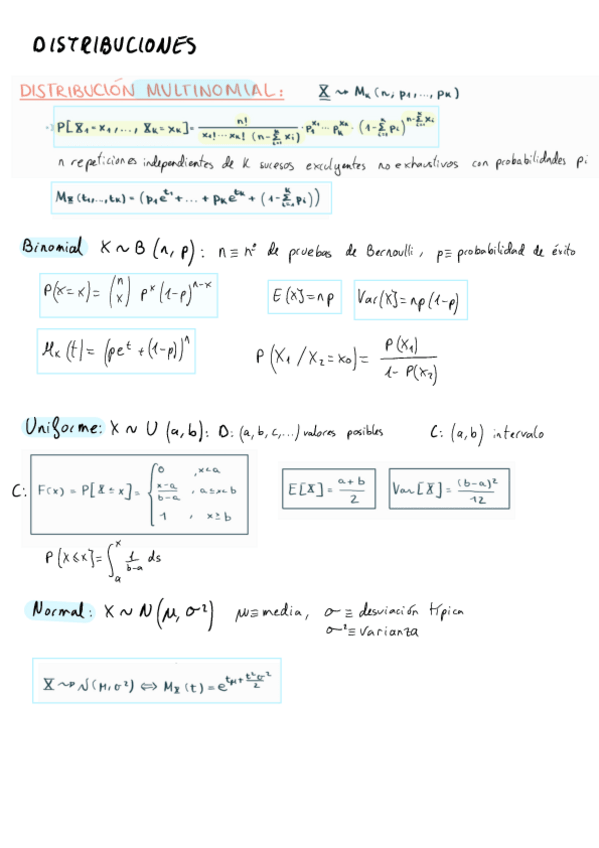 DISTRIBUCIONES
DISTRIBUCIÓN MULTINOMIAL: X ⇝ Mₖ(n; p₁,..., pₖ)
P[X₁=x₁,..., Xₖ=xₖ] = n! / (x₁!···xₖ! (n-∑ᵢ₌₁ᵏ xᵢ)!) · p₁^x₁ ··· pₖ^xₖ · (1-∑ᵢ₌₁ᵏ pᵢ)^(n-∑ᵢ₌₁ᵏ xᵢ)
n repeticiones independientes de K sucesos excluyentes no exhaustivos con probabilidades pi
M_X(t₁,...,tₖ) = (p₁e^t₁ + ... + pₖe^tₖ + (1-∑ᵢ₌₁ᵏ pᵢ))
Binomial X ~ B(n, p): n ≡ nº de pruebas de Bernoulli, p ≡ probabilidad de éxito
P(X=x) = (n x) p^x (1-p)^(n-x) E[X] = np Var[X] = np(1-p)
Mₓ(t) = (pe^t + (1-p))^n P(X₁/X₂=x₀) = P(X₁) / (1-P(X₂))
Uniforme: X ~ U(a,b): D: (a,b,c,...) valores posibles C: (a,b) intervalo
C: F(x) = P[X≤x] = { 0 , x<a
(x-a)/(b-a) , a≤x<b
1 , x≥b
E[X] = (a+b)/2 Var[X] = (b-a)²/12
P[X≤x] = ∫ₐˣ 1/(b-a) ds
Normal: X ~ N(μ, σ²) μ ≡ media, σ ≡ desviación típica
σ² ≡ varianza
X ⇝ N(μ,σ²) ⇔ M_X(t) = e^(tμ + t²σ²/2)